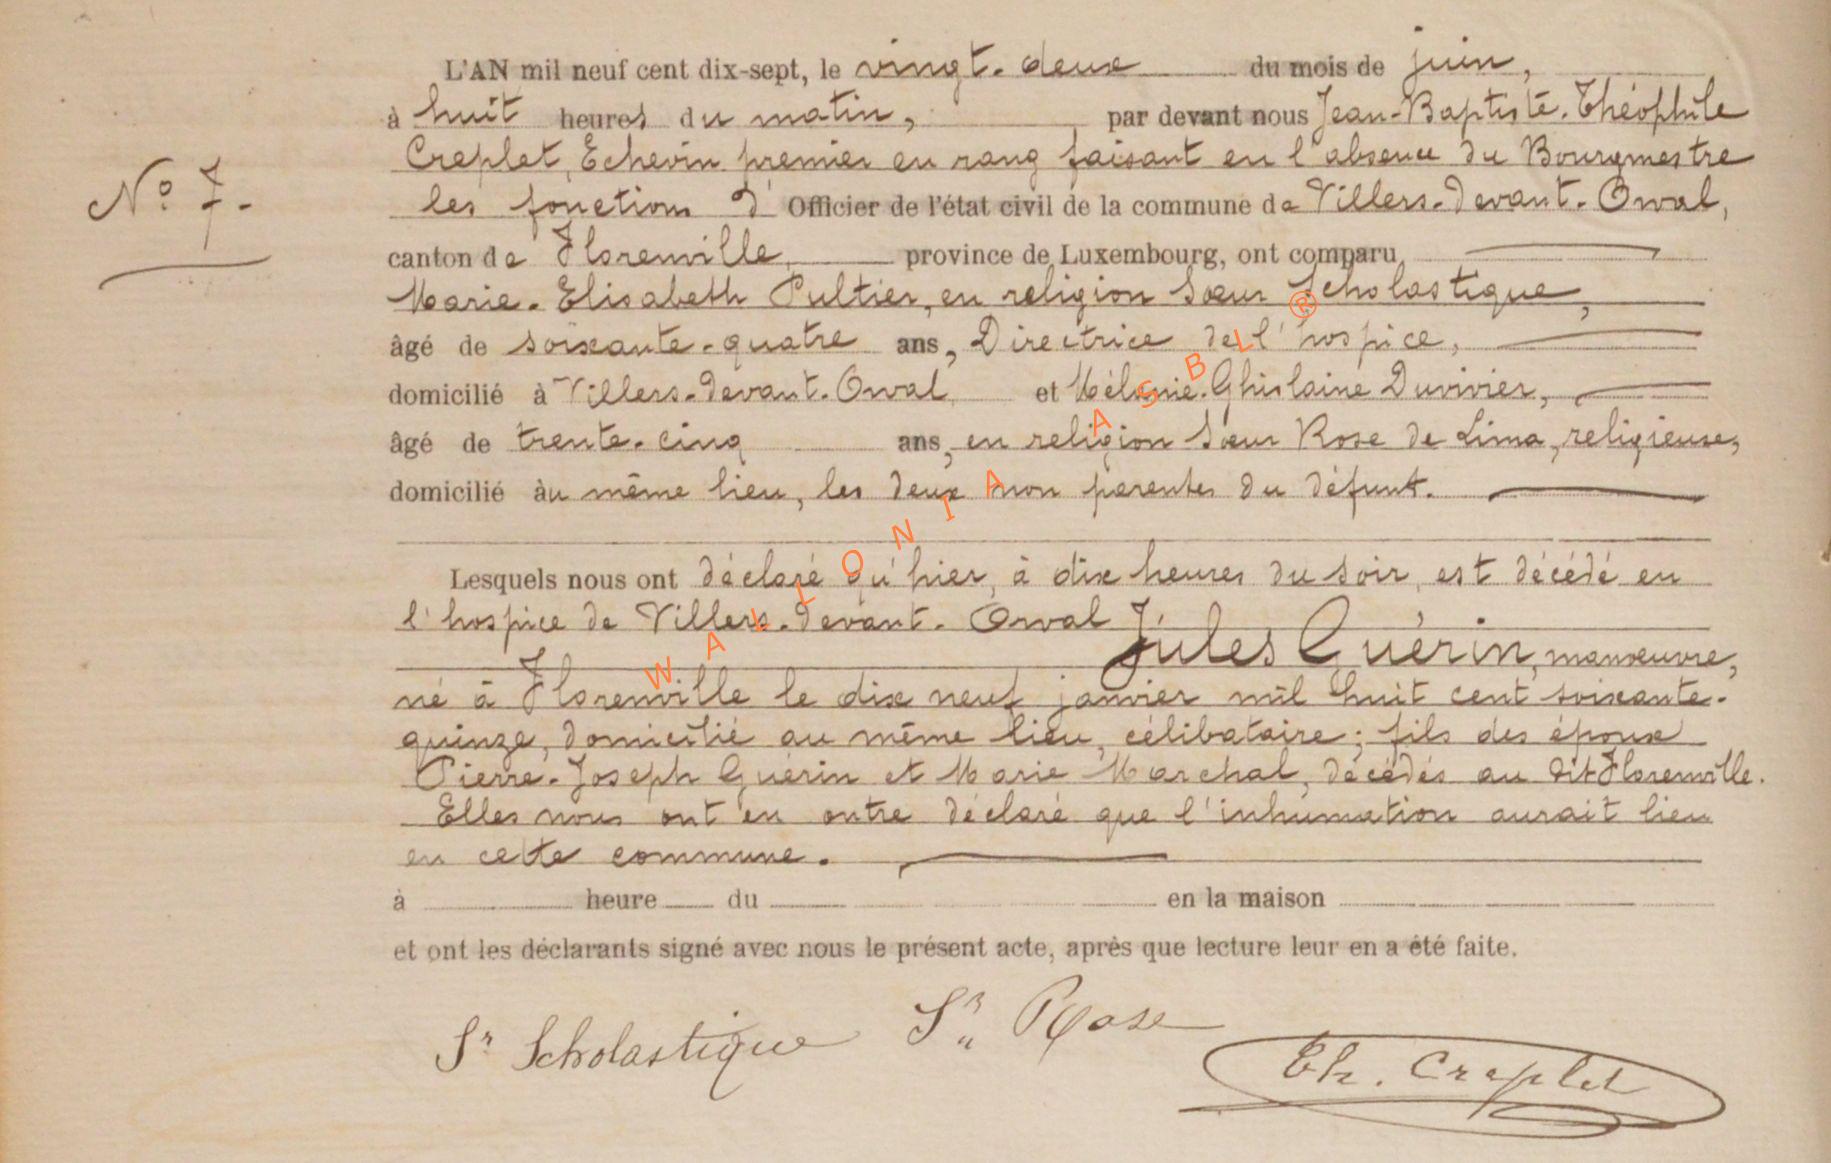 L'AN mil neuf cent dix-sept, le vingt-deux du mois de juin,
à huit heures du matin, par devant nous Jean-Baptiste-Théophile
Creplet, Echevin premier en rang faisant en l'absence du Bourgmestre
N° 7.
les fonctions d' Officier de l'état civil de la commune de Villers-devant-Orval,
canton de Florenville, province de Luxembourg, ont comparu
Marie-Elisabeth Pultier, en religion Sœur Scholastique,
âgé de soixante-quatre ans, Directrice de l'hospice,
domicilié à Villers-devant-Orval et Mélanie-Ghislaine Duvivier,
âgé de trente-cinq ans, en religion Sœur Rose de Lima, religieuse,
domicilié au même lieu, les deux non parentes du défunt.
Lesquels nous ont déclaré qu'hier, à dix heures du soir, est décédé en
l'hospice de Villers-devant-Orval Jules Guérin, manœuvre,
né à Florenville le dix neuf janvier mil huit cent soixante-
quinze, domicilié au même lieu, célibataire; fils des époux
Pierre-Joseph Guérin et Marie Marchal, décédés au dit Florenville.
Elles nous ont en outre déclaré que l'inhumation aurait lieu
en cette commune.
à heure du en la maison
et ont les déclarants signé avec nous le présent acte, après que lecture leur en a été faite.
Sr Scholastique Sr Rose
Th. Creplet
WALLONIA ASBL ®